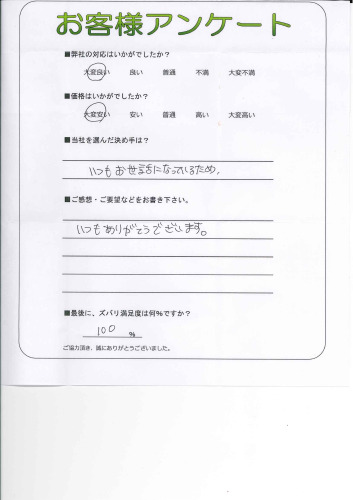 お客様アンケート
■弊社の対応はいかがでしたか？
大変良い 良い 普通 不満 大変不満
■価格はいかがでしたか？
大変安い 安い 普通 高い 大変高い
■当社を選んだ決め手は？
いつもお世話になっているため、
■ご感想・ご要望などをお書き下さい。
いつもありがとうございます。
■最後に、ズバリ満足度は何％ですか？
100 ％
ご協力頂き、誠にありがとうございました。